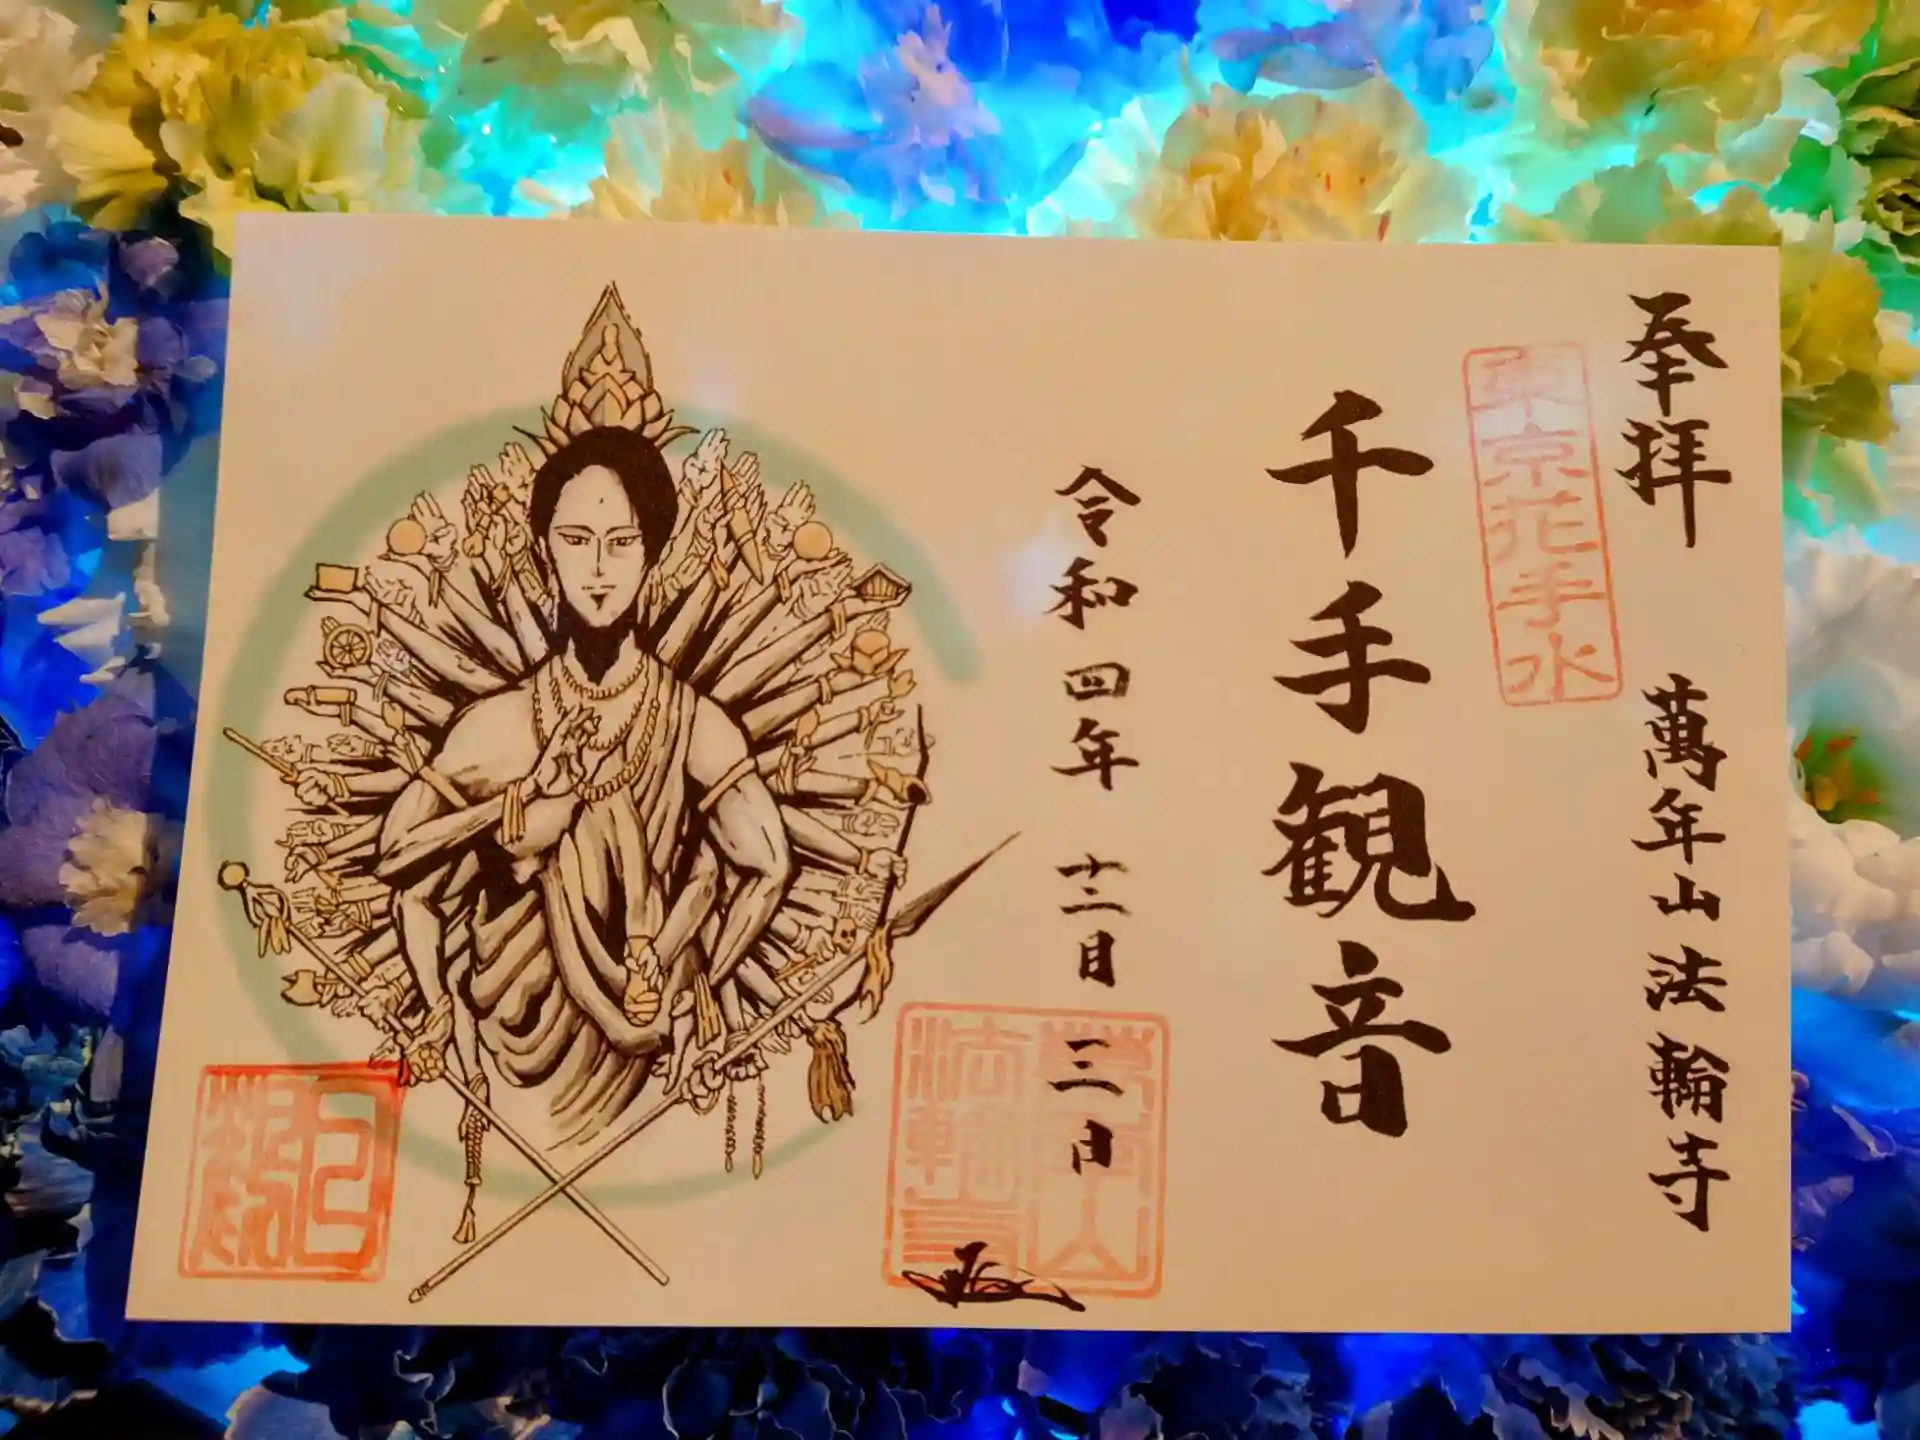 奉拝
萬年山法輪寺
東京花手水
千手観音
令和四年十二月三日